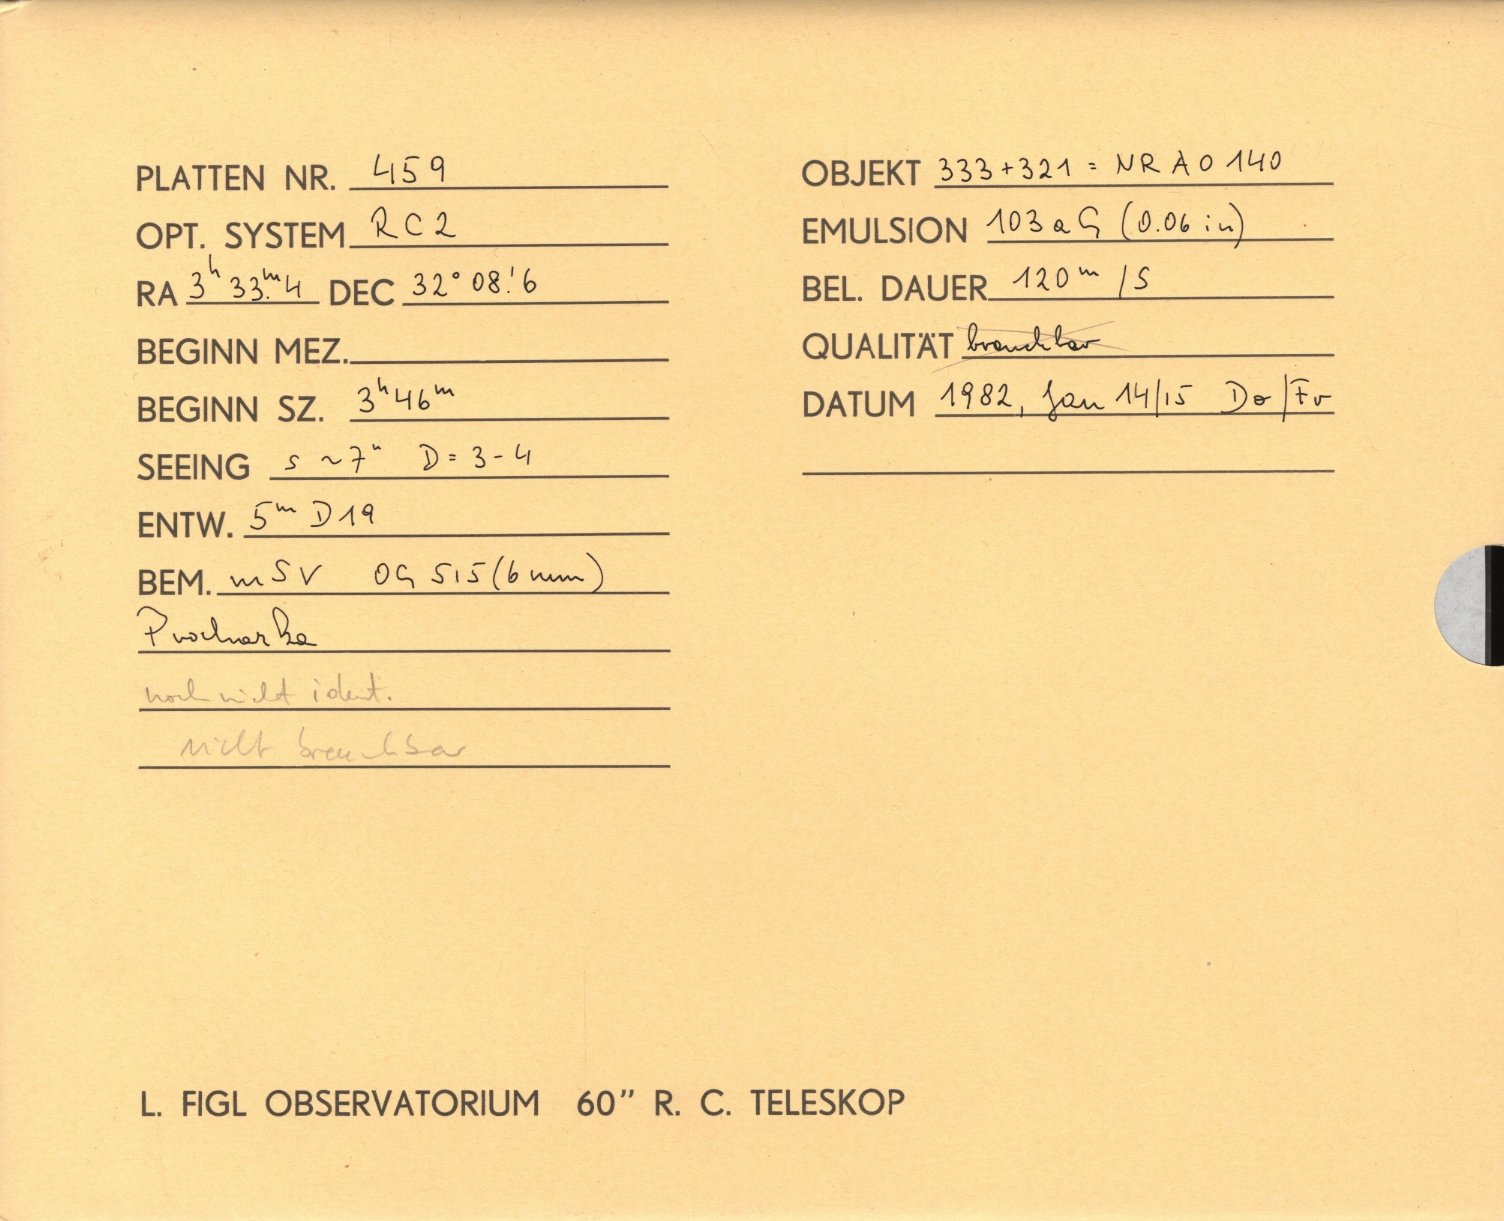 PLATTEN NR. 459
OPT. SYSTEM RC2
RA 3h 33m.4 DEC 32° 08!6
BEGINN MEZ.
BEGINN SZ. 3h46m
SEEING s ~7" D = 3-4
ENTW. 5m D19
BEM. mSV OG 515 (6 mm)
Prochazka
noch nicht ident.
nicht brauchbar
OBJEKT 333+321 = NRAO 140
EMULSION 103aG (0.06 in)
BEL. DAUER 120m /S
QUALITÄT brauchbar
DATUM 1982, Jan 14/15 Do/Fr
L. FIGL OBSERVATORIUM 60" R. C. TELESKOP